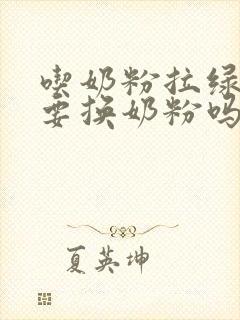 喫奶粉拉绿
要换奶粉吗
夏英坤